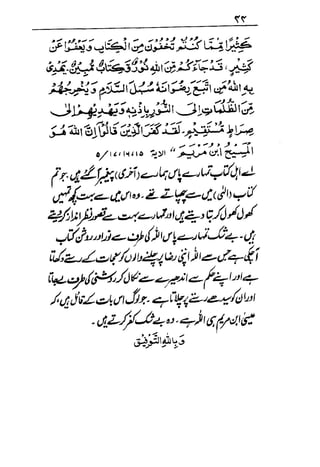 ۲۲
كَثِيْرًا مِّمَّا كُنْتُمْ تُخْفُوْنَ مِنَ الْكِتَابِ وَيَعْفُوْا عَنْ
كَثِيْرٍ، قَدْ جَآءَكُمْ مِّنَ اللّٰهِ نُوْرٌ وَّكِتَابٌ مُّبِيْنٌ يَهْدِىْ
بِهِ اللّٰهُ مَنِ اتَّبَعَ رِضْوَانَهٗ سُبُلَ السَّلَامِ وَيُخْرِجُهُمْ
مِّنَ الظُّلُمَاتِ اِلَى النُّوْرِ بِاِذْنِهٖ وَيَهْدِيْهِمْ اِلٰى
صِرَاطٍ مُّسْتَقِيْمٍ۔ لَقَدْ كَفَرَ الَّذِيْنَ قَالُوْآ اِنَّ اللّٰهَ هُوَ
الْمَسِيْحُ ابْنُ مَرْيَمَ" الاية ۱۷/۱۶/۱۵/۵
اے اہل کتاب تمہارے پاس ہمارے (آخری) پیغمبر آگئے ہیں، جو تم
کتاب (الٰہی) میں سے چھپاتے تھے۔ وہ اس میں سے بہت کچھ تمہیں
کھول کھول کر بتا دیتے ہیں اور تمہارے بہت سے قصور نظر انداز کر دیتے
ہیں۔ بے شک تمہارے پاس اللہ کی طرف سے نور اور روشن کتاب
آچکی ہے جس سے اللہ اپنی رضا پر چلنے والوں کو نجات کے رستے دکھاتا
ہے اور اپنے حکم سے اندھیرے سے نکال کر روشنی کی طرف لے جاتا
اور ان کو سیدھے رستے پر چلاتا ہے۔ جو لوگ اس بات کے قائل ہیں، کہ
عیسیٰ ابن مریم ہی اللہ ہے۔ وہ بے شک کفر کرتے ہیں۔
وَبِاللّٰهِ التَّوْفِيْق